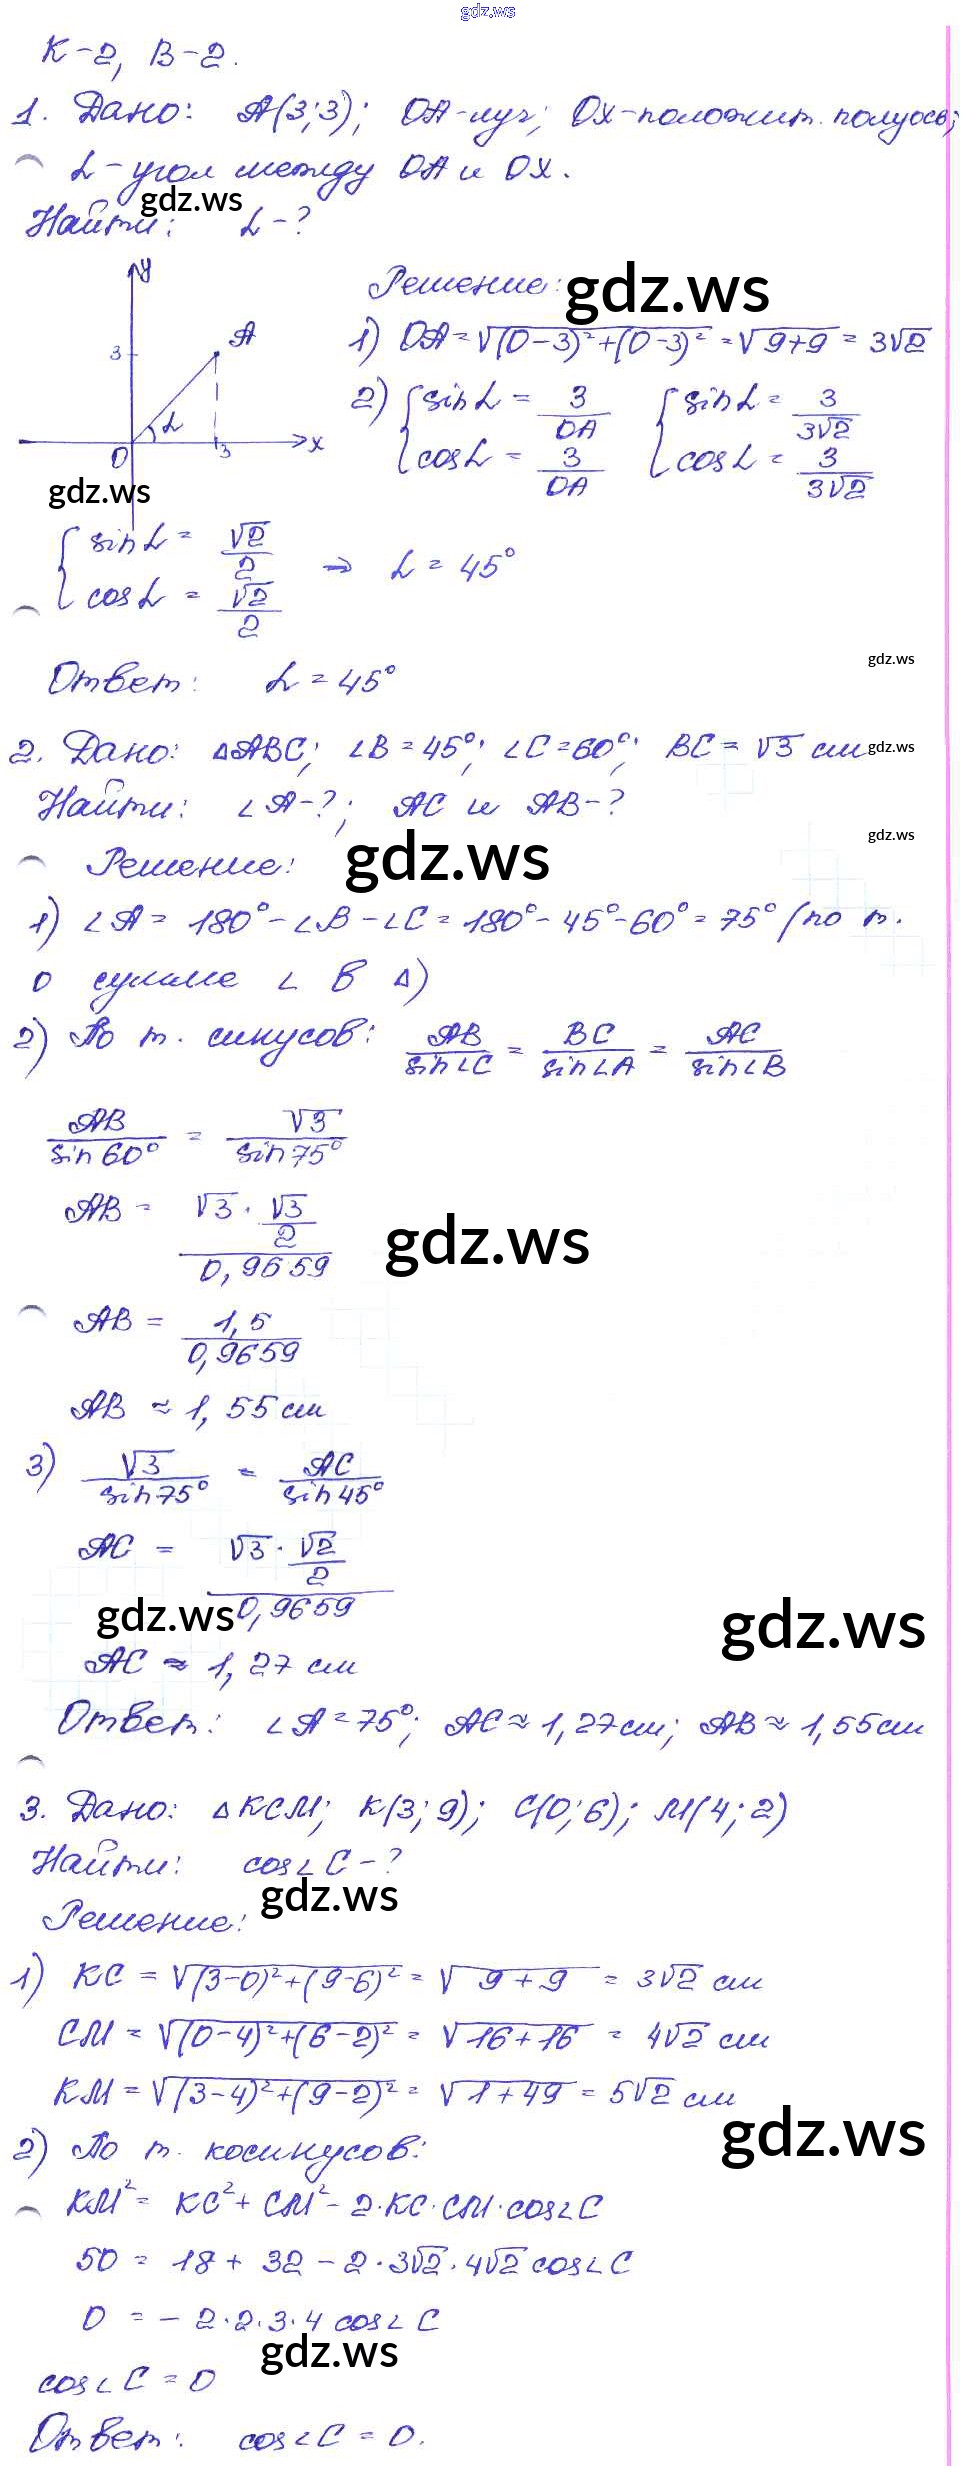 gdz.ws
К-2, В-2.
1. Дано: A(3;3); OA-луч; OX-положит. полуось;
α-угол между OA и OX.
gdz.ws
Найти: α-?
Решение:
gdz.ws
1) OA=√((0-3)²+(0-3)²)=√(9+9)=3√2
2) {sinα=3/OA {sinα=3/(3√2)
cosα=3/OA cosα=3/(3√2)
y
3
A
α
O
3
x
gdz.ws
{sinα=√2/2
cosα=√2/2 ⇒ α=45°
gdz.ws
Ответ: α=45°
2. Дано: △ABC; ∠B=45°; ∠C=60°; BC=√3 см
gdz.ws
Найти: ∠A-?; AC и AB-?
gdz.ws
Решение:
gdz.ws
1) ∠A=180°-∠B-∠C=180°-45°-60°=75° (по т.
о сумме ∠ в △)
2) По т. синусов: AB/sin∠C = BC/sin∠A = AC/sin∠B
AB/sin60° = √3/sin75°
AB = (√3·√3/2)/0,9659
gdz.ws
AB = 1,5/0,9659
AB ≈ 1,55 см
3) √3/sin75° = AC/sin45°
AC = (√3·√2/2)/0,9659
gdz.ws
gdz.ws
AC ≈ 1,27 см
Ответ: ∠A=75°; AC≈1,27см; AB≈1,55см
3. Дано: △KCM; K(3;9); C(0;6); M(4;2)
Найти: cos∠C-?
gdz.ws
Решение:
1) KC=√((3-0)²+(9-6)²)=√(9+9)=3√2 см
CM=√((0-4)²+(6-2)²)=√(16+16)=4√2 см
KM=√((3-4)²+(9-2)²)=√(1+49)=5√2 см
gdz.ws
2) По т. косинусов:
KM²=KC²+CM²-2·KC·CM·cos∠C
50=18+32-2·3√2·4√2cos∠C
0=-2·2·3·4cos∠C
gdz.ws
cos∠C=0
Ответ: cos∠C=0.